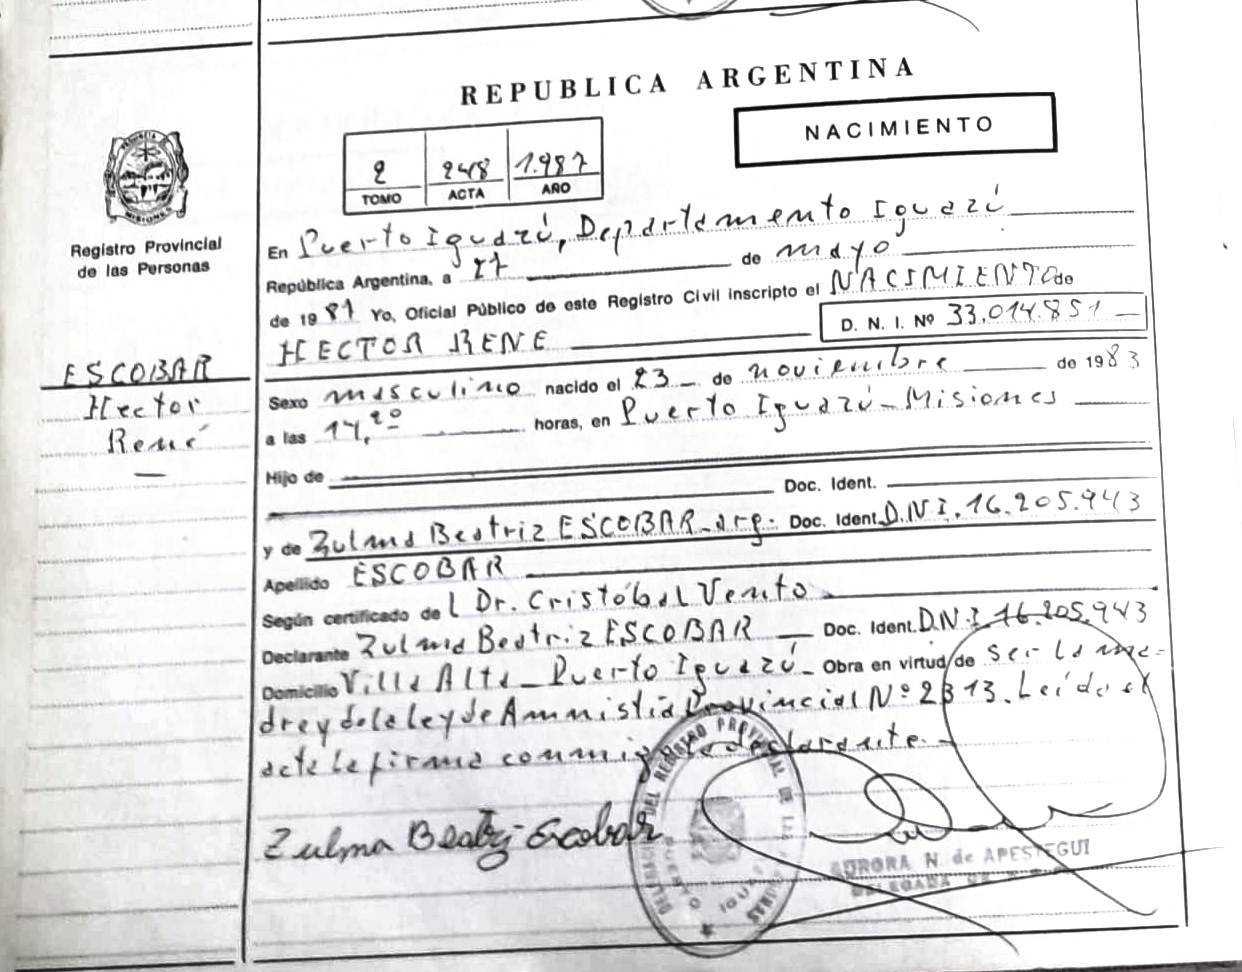 REPUBLICA ARGENTINA
NACIMIENTO
2 248 1.987
TOMO ACTA AÑO
Registro Provincial
de las Personas
ESCOBAR
Hector
René
En Puerto Iguazú, Departamento Iguazú
República Argentina, a 27 de mayo
de 1987 Yo, Oficial Público de este Registro Civil inscripto el NACIMIENTO de
HECTOR RENE D. N. I. Nº 33.014.851
Sexo masculino nacido el 23 de noviembre de 1983
a las horas, en Puerto Iguazú - Misiones
Hijo de
Doc. Ident.
y de Zulma Beatriz ESCOBAR - arg. Doc. Ident. D.N.I. 16.205.943
Apellido ESCOBAR
Según certificado del Dr. Cristóbal Vento
Declarante Zulma Beatriz ESCOBAR Doc. Ident. D.N.I. 16.205.943
Domicilio Villa Alta - Puerto Iguazú - Obra en virtud de ser la ma-
dre y de la ley de Amnistía Provincial Nº 2813. Leído el
acta la firma conmigo la declarante.-
Zulma Beatriz Escobar
AURORA N. de APESTEGUI
DELEGADA